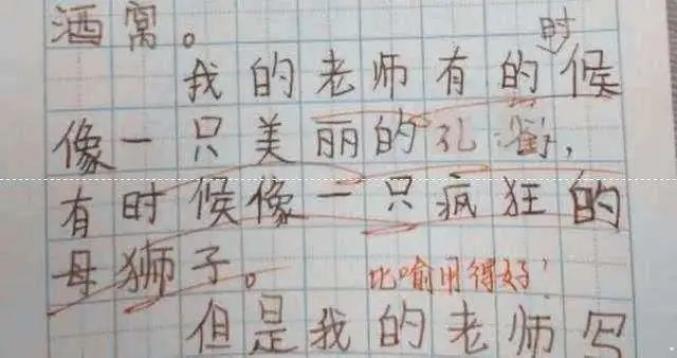 酒窝。
我的老师有的时候
像一只美丽的孔雀,
有时候像一只疯狂的
母狮子。 比喻用得好!
但是我的老师写